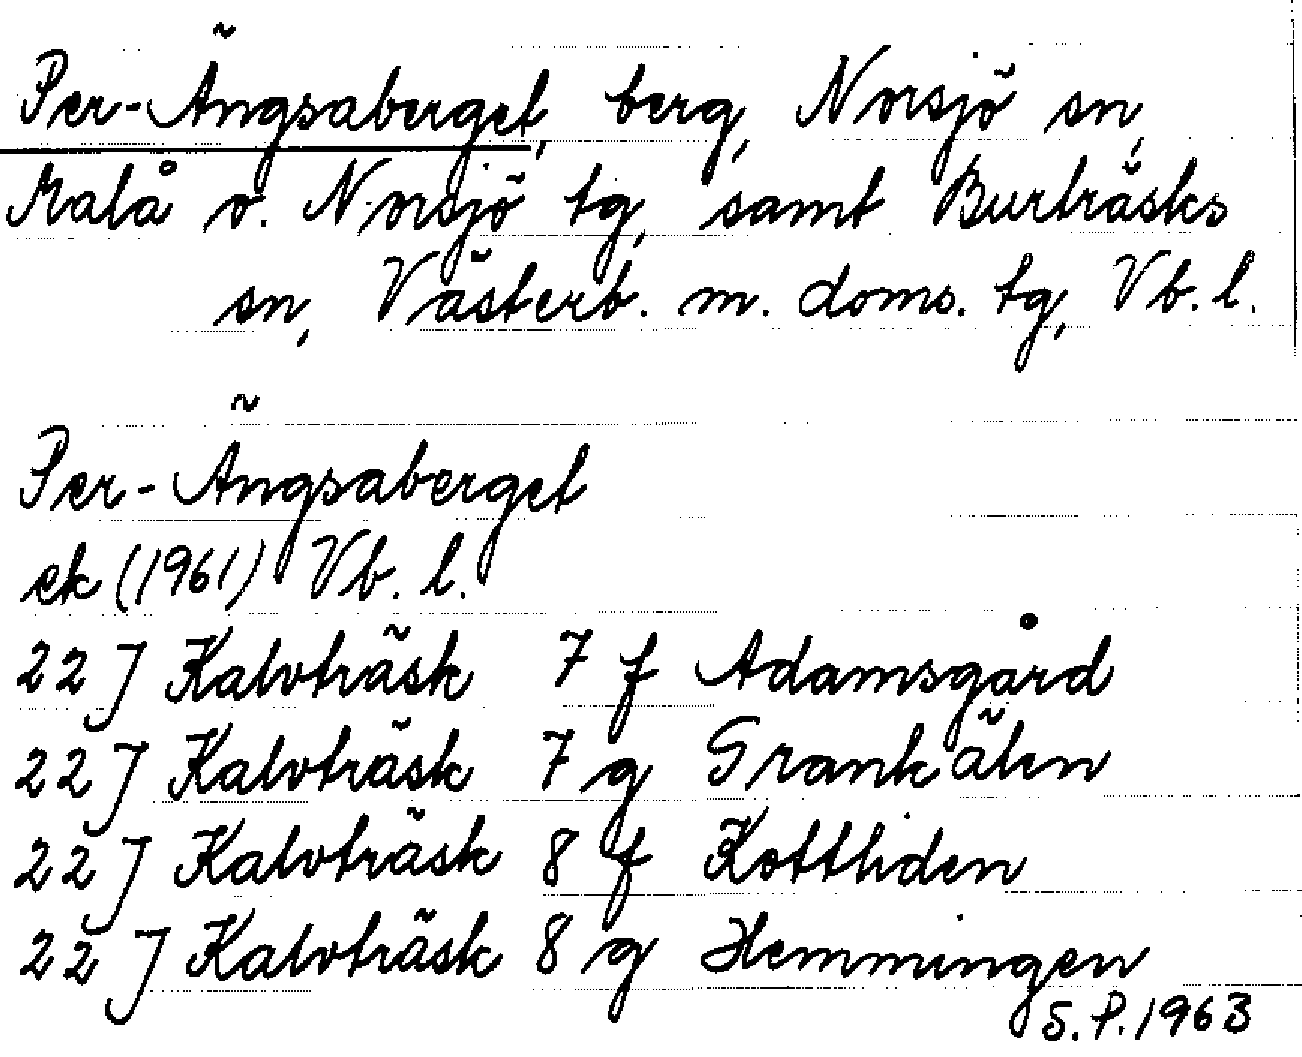 Per-Ängsaberget, berg, Norsjö sn,
Malå o. Norsjö tg, samt Burträsks
sn, Västerb. m. doms. tg, Vb. l.
Per-Ängsaberget
ek (1961) Vb. l.
22 J Kalvträsk 7 f Adamsgård
22 J Kalvträsk 7 g Grankälen
22 J Kalvträsk 8 f Kottliden
22 J Kalvträsk 8 g Hemmingen
S.P. 1963